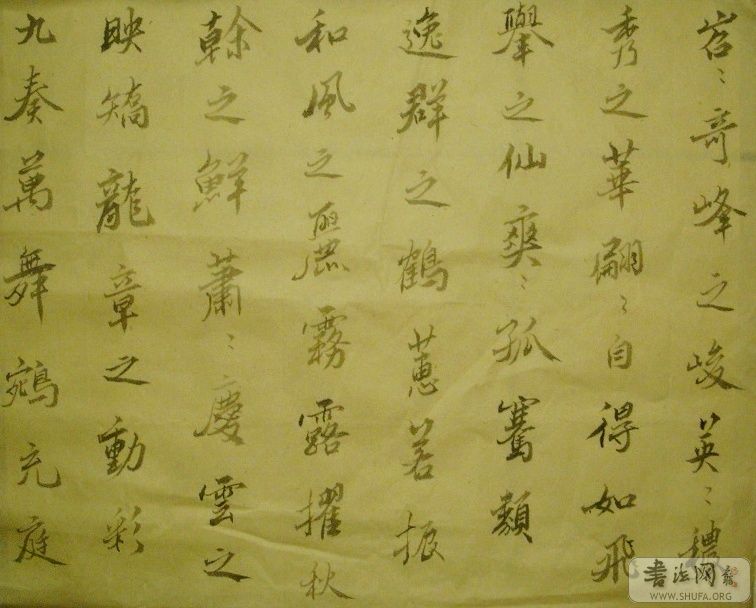 岩〻奇峰之峻英〻穠
秀之華翩〻自得如飛
舉之仙爽〻孤騫類
逸群之鶴蕙若振
和風之麗霧露擢秋
榦之鮮蕭〻慶雲之
映矯龍章之動彩
九奏萬舞鵷充庭
书法网
WWW.SHUFA.ORG